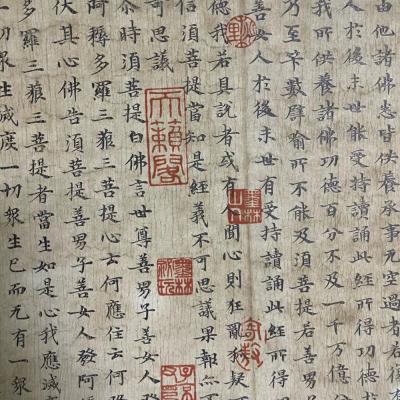 由他諸佛悉皆供養承事无空過者若
人於後末世能受持讀誦此經所得功德
我所供養諸佛功德百分不及一千万億
乃至筭數譬喻所不能及須菩提若善男
善女人於後末世有受持讀誦此經所得
德我若具說者或有人聞心則狂亂狐疑
信須菩提當知是經義不可思議果報亦
可思議
天籟閣
尒時須菩提白佛言世尊善男子善女人發
耨多羅三藐三菩提心云何應住云何
伏其心佛告須菩提善男子善女人發阿
多羅三藐三菩提者當生如是心我應滅
一切眾生滅度一切眾生已而无有一眾